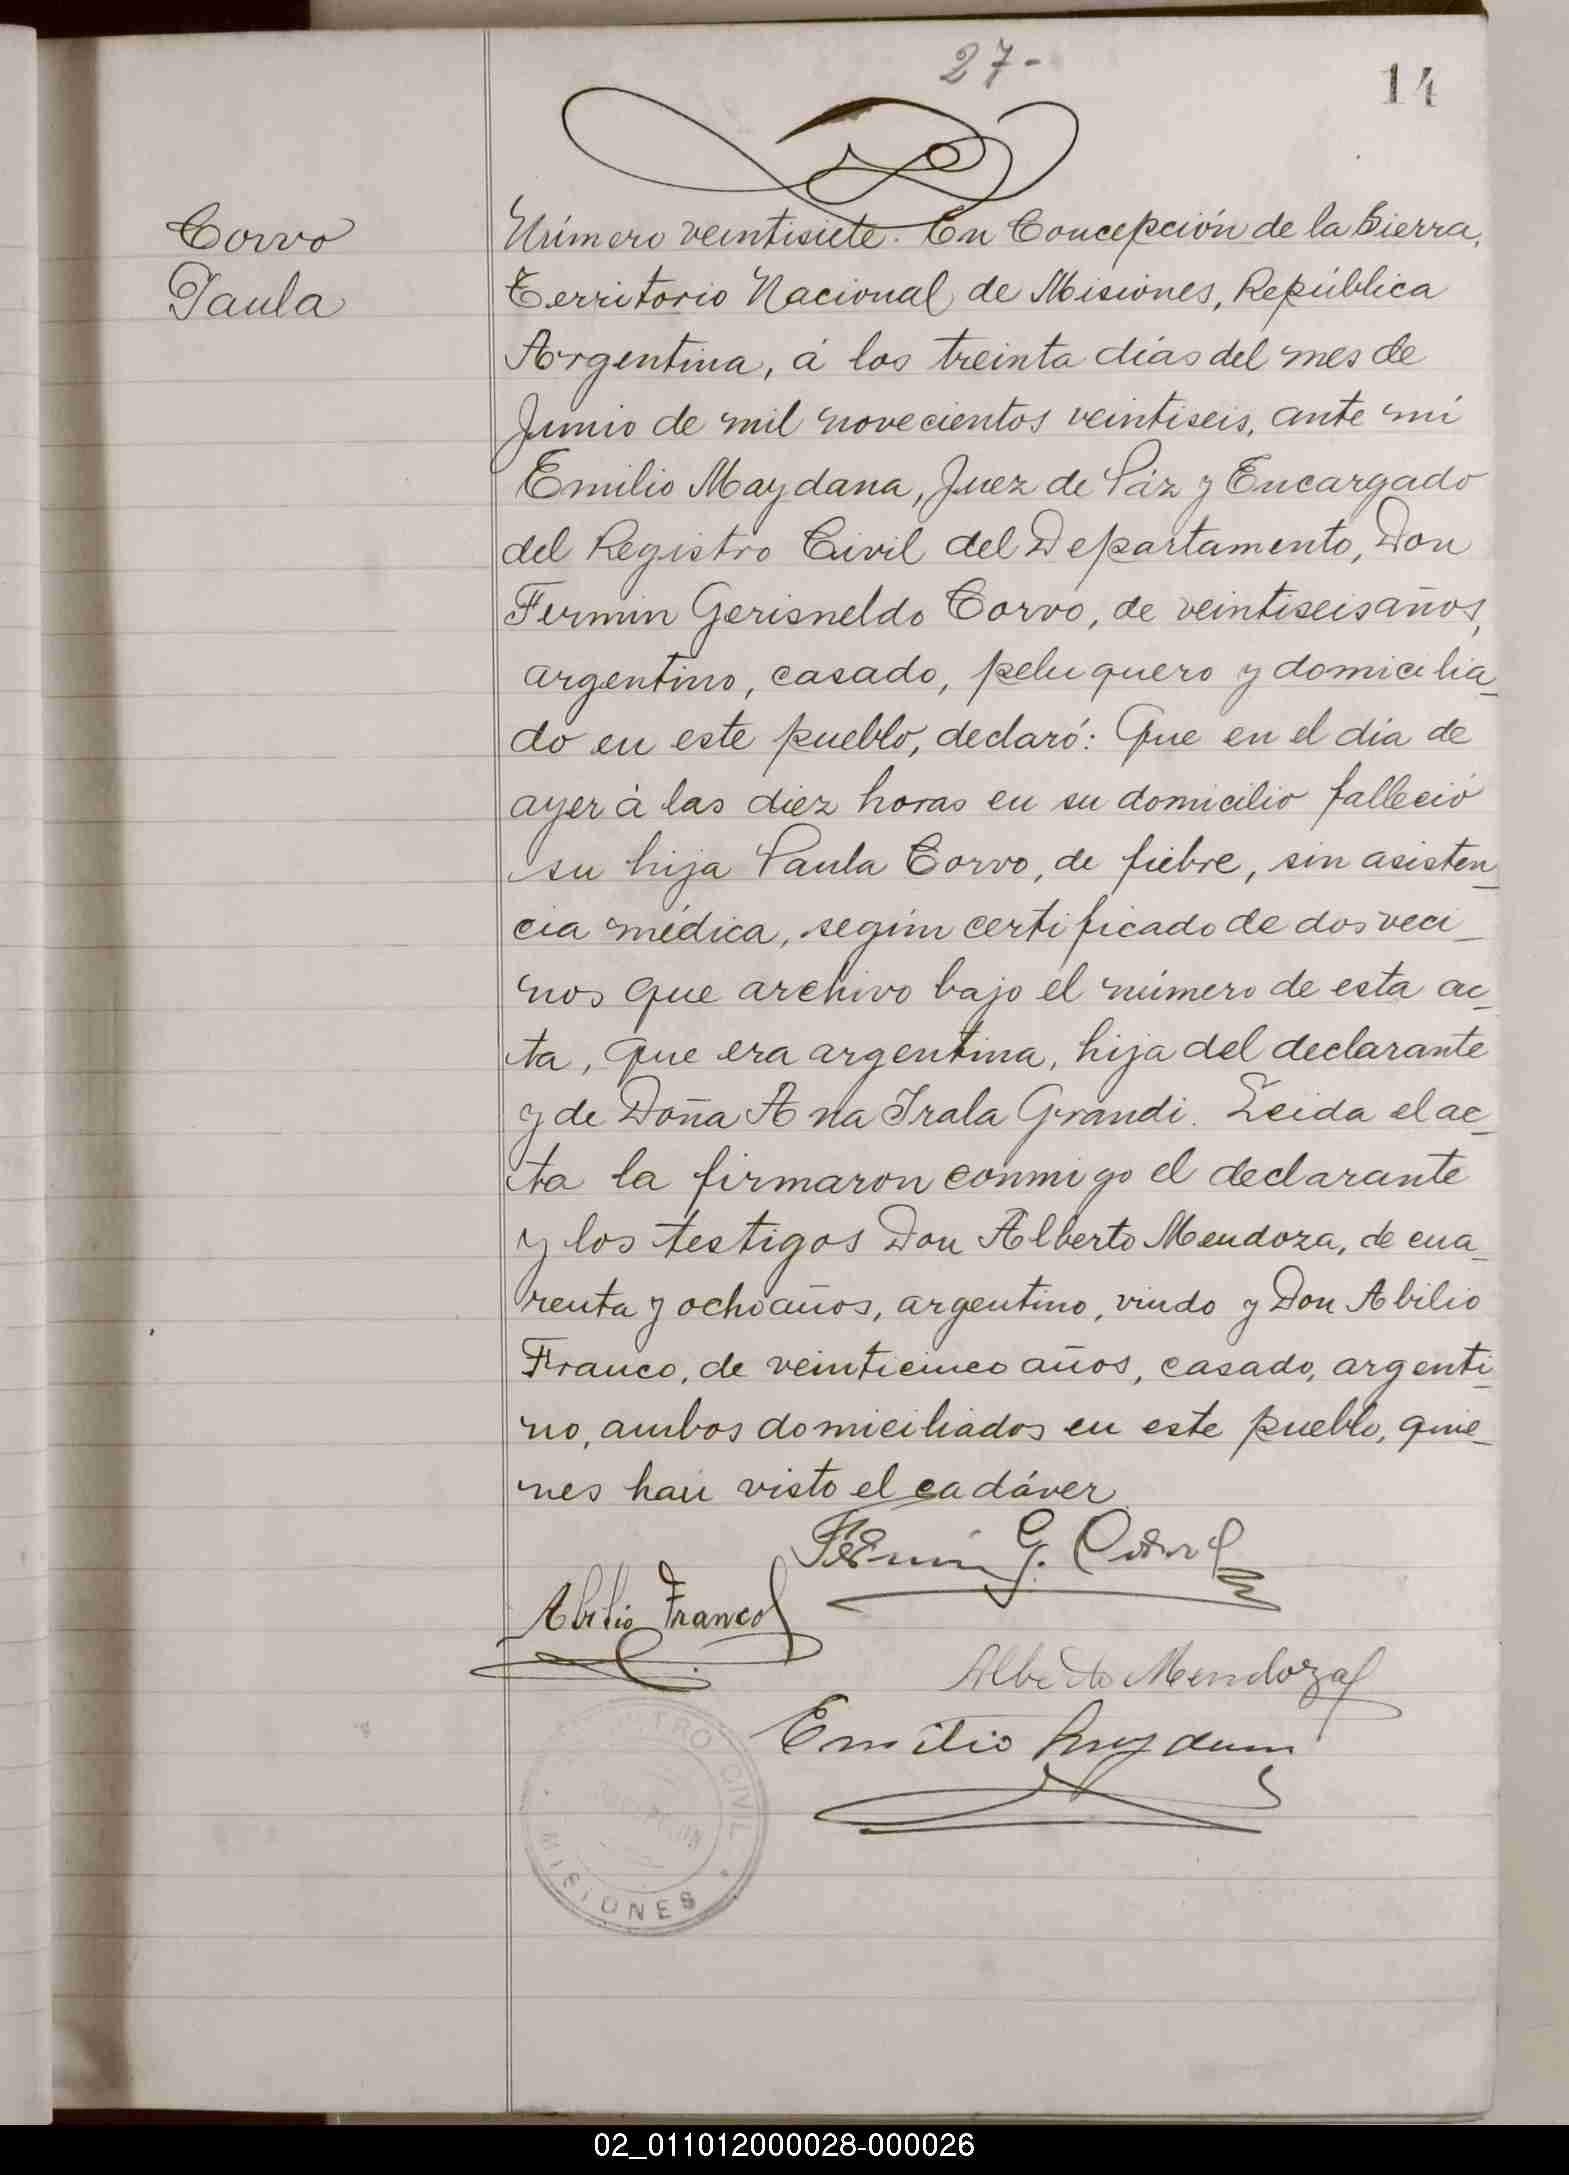 27-
14
Corvo
Paula
Número veintisiete. En Concepción de la Sierra,
Territorio Nacional de Misiones, República
Argentina, á los treinta días del mes de
Junio de mil novecientos veintiseis, ante mí
Emilio Maydana, Juez de Páz y Encargado
del Registro Civil del Departamento, Don
Fermin Gerisneldo Corvo, de veintiseis años,
argentino, casado, peluquero y domicilia_
do en este pueblo, declaró: Que en el día de
ayer á las diez horas en su domicilio falleció
su hija Paula Corvo, de fiebre, sin asisten_
cia médica, según certificado de dos veci_
nos que archivo bajo el número de esta ac_
ta, que era argentina, hija del declarante
y de Doña Ana Irala Grandi. Leida el ac_
ta la firmaron conmigo el declarante
y los testigos Don Alberto Mendoza, de cua_
renta y ocho años, argentino, viudo y Don Abilio
Franco, de veinticinco años, casado, argenti_
no, ambos domiciliados en este pueblo, quie_
nes han visto el cadáver.
Fermin G. Corvo
Abilio Franco
Alberto Mendoza
Emilio Maydana
REGISTRO CIVIL
MISIONES
02_011012000028-000026